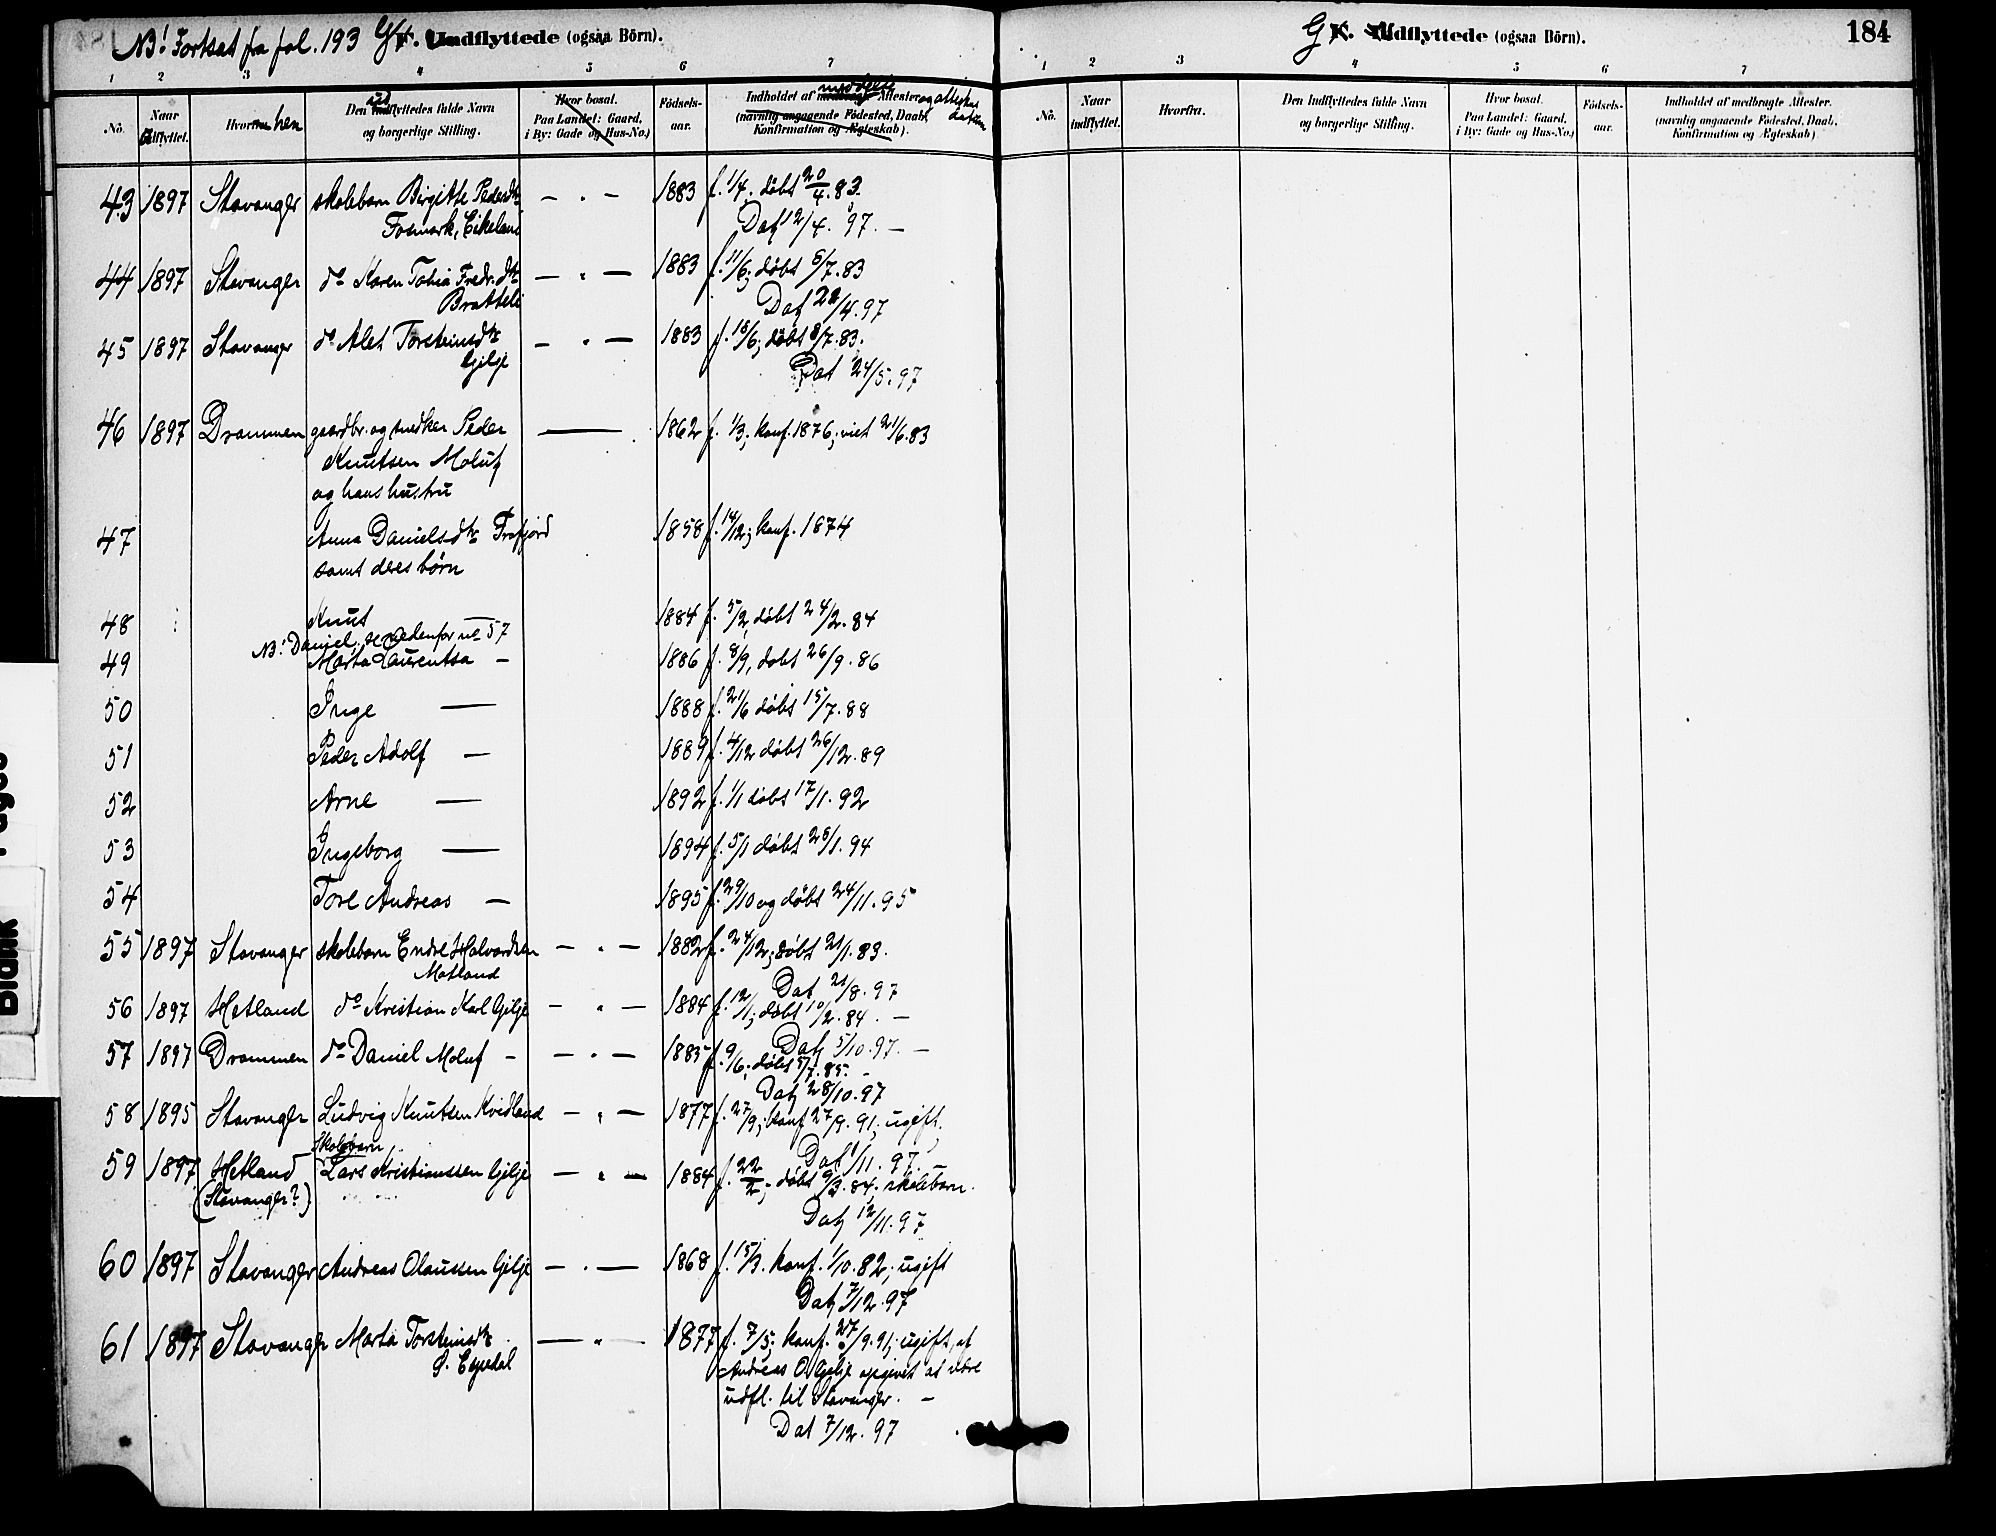 NB! Fortsat fra fol. 193 G. Udflyttede (ogsaa Börn).
1 2 3 4 5 6 7
No. Naar udflyttet. Hvorhen Den udflyttedes fulde Navn og borgerlige Stilling. Hvor bosat. Paa Landet: Gaard, i By: Gade og Hus-No.) Fødsels-aar. Indholdet af meddelte Attester og attestens datum (navnlig angaaende Födested, Daab, Konfirmation og Ægteskab).
43 1897 Stavanger skolebarn Birgitte Pedersdtr — " — 1883 f. 1/4. døbt 20/4. 83.
Fosmark, Eikeland Dat 12/4. 97. —
44 1897 Stavanger do Karen Tobia Fredr.dtr — " — 1883 f. 11/6; døbt 5/7. 83
Bratteli Dat 22/4. 97
45 1897 Stavanger do Alet Torsteinsdtr — " — 1883 f. 18/6; døbt 8/7. 83.
Gilje Dat 24/5. 97
46 1897 Drammen gaardbr. og snedker Peder — 1862 f. 1/3; konf. 1876; viet 21/6. 83
Knutsen Moluf
og hans hustru
47 Anna Danielsdtr Frafjord 1858 f. 14/12; konf. 1874
samt deres børn
48 Knut — 1884 f. 5/2, døbt 24/2. 84
NB! Daniel, se nedenfor no 57
49 Marta Laurentsa — 1886 f. 8/9, døbt 26/9. 86
50 Inge — 1888 f. 21/6 døbt 15/7. 88
51 Peder Adolf — 1889 f. 4/12 døbt 26/12. 89
52 Arne — 1892 f. 1/1 døbt 17/1. 92
53 Ingeborg — 1894 f. 5/1 døbt 28/1. 94
54 Tore Andreas — 1895 f. 29/10 og døbt 24/11. 95
55 1897 Stavanger skolebarn Endre Halvardsen — " — 1882 f. 24/12; døbt 21/1. 83.
Matland Dat 21/8. 97
56 1897 Hetland do Kristian Karl Gilje — " — 1884 f. 12/1; døbt 10/2. 84. —
Dat 5/10. 97. —
57 1897 Drammen do Daniel Moluf — — " — 1885 f. 9/6; døbt 5/7. 85. —
Dat 28/10. 97
58 1895 Stavanger Ludvig Knutsen Kvidland — " — 1877 f. 27/9; konf 27/9. 91; ugift.
Dat 1/11. 97. —
Skolebarn
59 1897 Hetland Lars Kristianssen Gilje — " — 1884 f. 22/2; døbt 9/3. 84; skolebarn.
(Stavanger?) Dat 12/11. 97
60 1897 Stavanger Andreas Olaussen Gilje — " — 1868 f. 15/3. konf. 1/10. 82; ugift
Dat 7/12. 97
61 1897 Stavanger Marta Torsteinsdtr — " — 1877 f. 7/5; konf. 27/9. 91; ugift, af
Ø. Espedal Andreas O. Gilje opgivet at være
udfl. til Stavanger. —
Dat 7/12. 97
G. Udflyttede (ogsaa Börn). 184
1 2 3 4 5 6 7
No. Naar indflyttet. Hvorfra. Den Indflyttedes fulde Navn og borgerlige Stilling. Hvor bosat. Paa Landet: Gaard, i By: Gade og Hus-No.) Födsels-aar. Indholdet af medbragte Attester. (navnlig angaaende Födested, Daab, Konfirmation og Ægteskab)